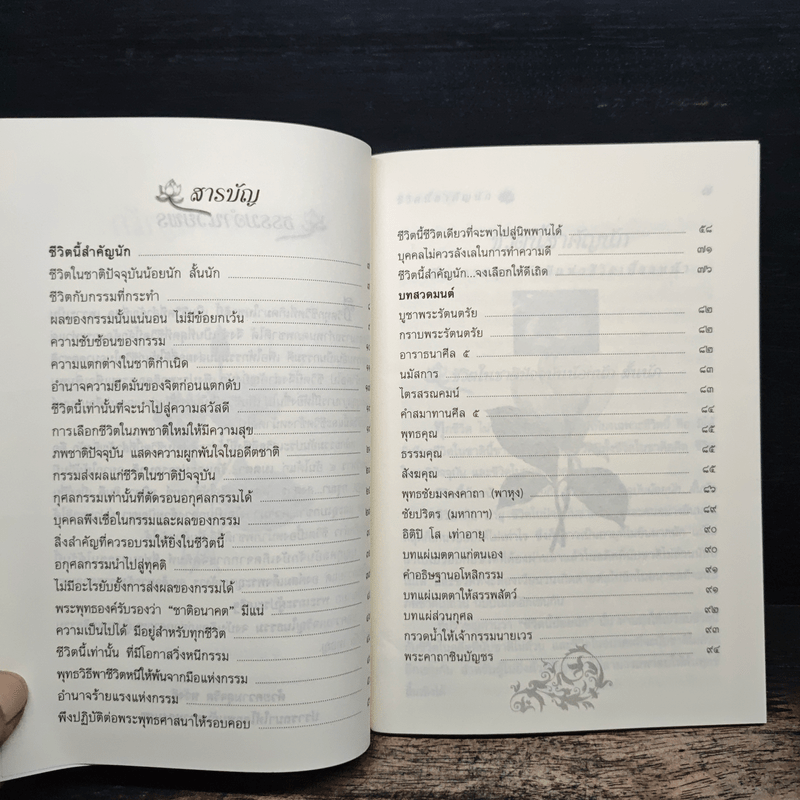 สารบัญ
ชีวิตนี้สำคัญนัก
ชีวิตในชาติปัจจุบันน้อยนัก สั้นนัก
ชีวิตกับกรรมที่กระทำ
ผลของกรรมนั้นแน่นอน ไม่มีข้อยกเว้น
ความซับซ้อนของกรรม
ความแตกต่างในชาติกำเนิด
อำนาจความยึดมั่นของจิตก่อนแตกดับ
ชีวิตนี้เท่านั้นที่จะนำไปสู่ความสวัสดี
การเลือกชีวิตในภพชาติใหม่ให้มีความสุข
ภพชาติปัจจุบัน แสดงความผูกพันใจในอดีตชาติ
กรรมส่งผลแก่ชีวิตในชาติปัจจุบัน
กุศลกรรมเท่านั้นที่ตัดรอนอกุศลกรรมได้
บุคคลพึงเชื่อในกรรมและผลของกรรม
สิ่งสำคัญที่ควรอบรมให้ยิ่งในชีวิตนี้
อกุศลกรรมนำไปสู่ทุคติ
ไม่มีอะไรยับยั้งการส่งผลของกรรมได้
พระพุทธองค์รับรองว่า "ชาติอนาคต" มีแน่
ความเป็นไปได้ มีอยู่สำหรับทุกชีวิต
ชีวิตนี้เท่านั้น ที่มีโอกาสวิ่งหนีกรรม
พุทธวิธีพาชีวิตหนีให้พ้นจากมือแห่งกรรม
อำนาจร้ายแรงแห่งกรรม
พึงปฏิบัติต่อพระพุทธศาสนาให้รอบคอบ
ชีวิตนี้ชีวิตเดียวที่จะพาไปสู่นิพพานได้ ๕๘
บุคคลไม่ควรลังเลในการทำความดี ๗๑
ชีวิตนี้สำคัญนัก...จงเลือกให้ดีเถิด ๗๖
บทสวดมนต์
บูชาพระรัตนตรัย ๘๒
กราบพระรัตนตรัย ๘๒
อาราธนาศีล ๕ ๘๒
นมัสการ ๘๓
ไตรสรณคมน์ ๘๓
คำสมาทานศีล ๕ ๘๔
พุทธคุณ ๘๕
ธรรมคุณ ๘๕
สังฆคุณ ๘๕
พุทธชัยมงคงคาถา (พาหุง) ๘๖
ชัยปริตร (มหากาฯ) ๘๙
อิติปิ โส เท่าอายุ ๙๐
บทแผ่เมตตาแก่ตนเอง ๙๐
คำอธิษฐานอโหสิกรรม ๙๑
บทแผ่เมตตาให้สรรพสัตว์ ๙๑
บทแผ่ส่วนกุศล ๙๒
กรวดน้ำให้เจ้ากรรมนายเวร ๙๓
พระคาถาชินบัญชร ๙๔